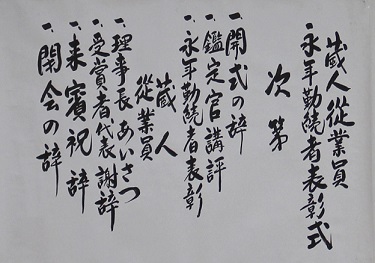 蔵人従業員
永年勤続者表彰式
次第
一、開式の辞
一、鑑定官講評
一、永年勤続者表彰
蔵人
従業員
一、理事長あいさつ
一、受賞者代表謝辞
一、来賓祝辞
一、閉会の辞